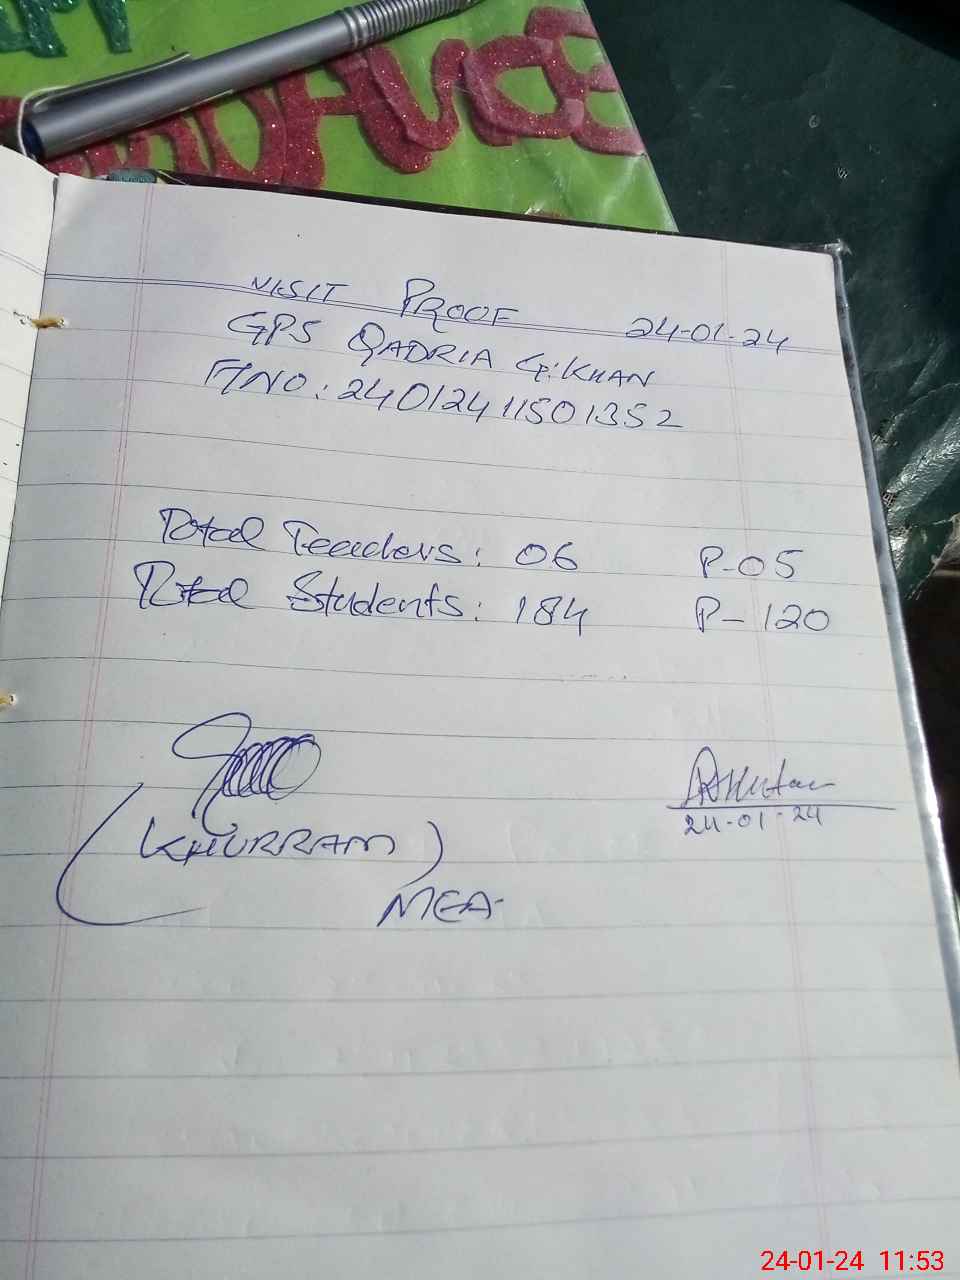 VISIT PROOF 24-01-24
GPS QADRIA G.KHAN
F/NO: 24012411501352
Total Teachers: 06 P-05
Total Students: 184 P-120
(KHURRAM)
MEA
24-01-24
24-01-24 11:53